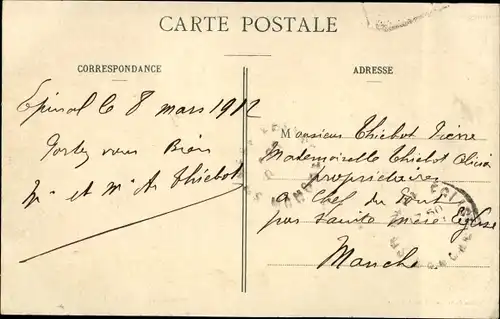 CARTE POSTALE
CORRESPONDANCE
Epinal le 8 mars 1912
Portez vous Bien
Mr et Me A. Thiebot
ADRESSE
Monsieur Thiebot Pierre
Mademoiselle Thiebot
propriétaires
a Chef du Pont
par Sainte mère Eglise
Manche